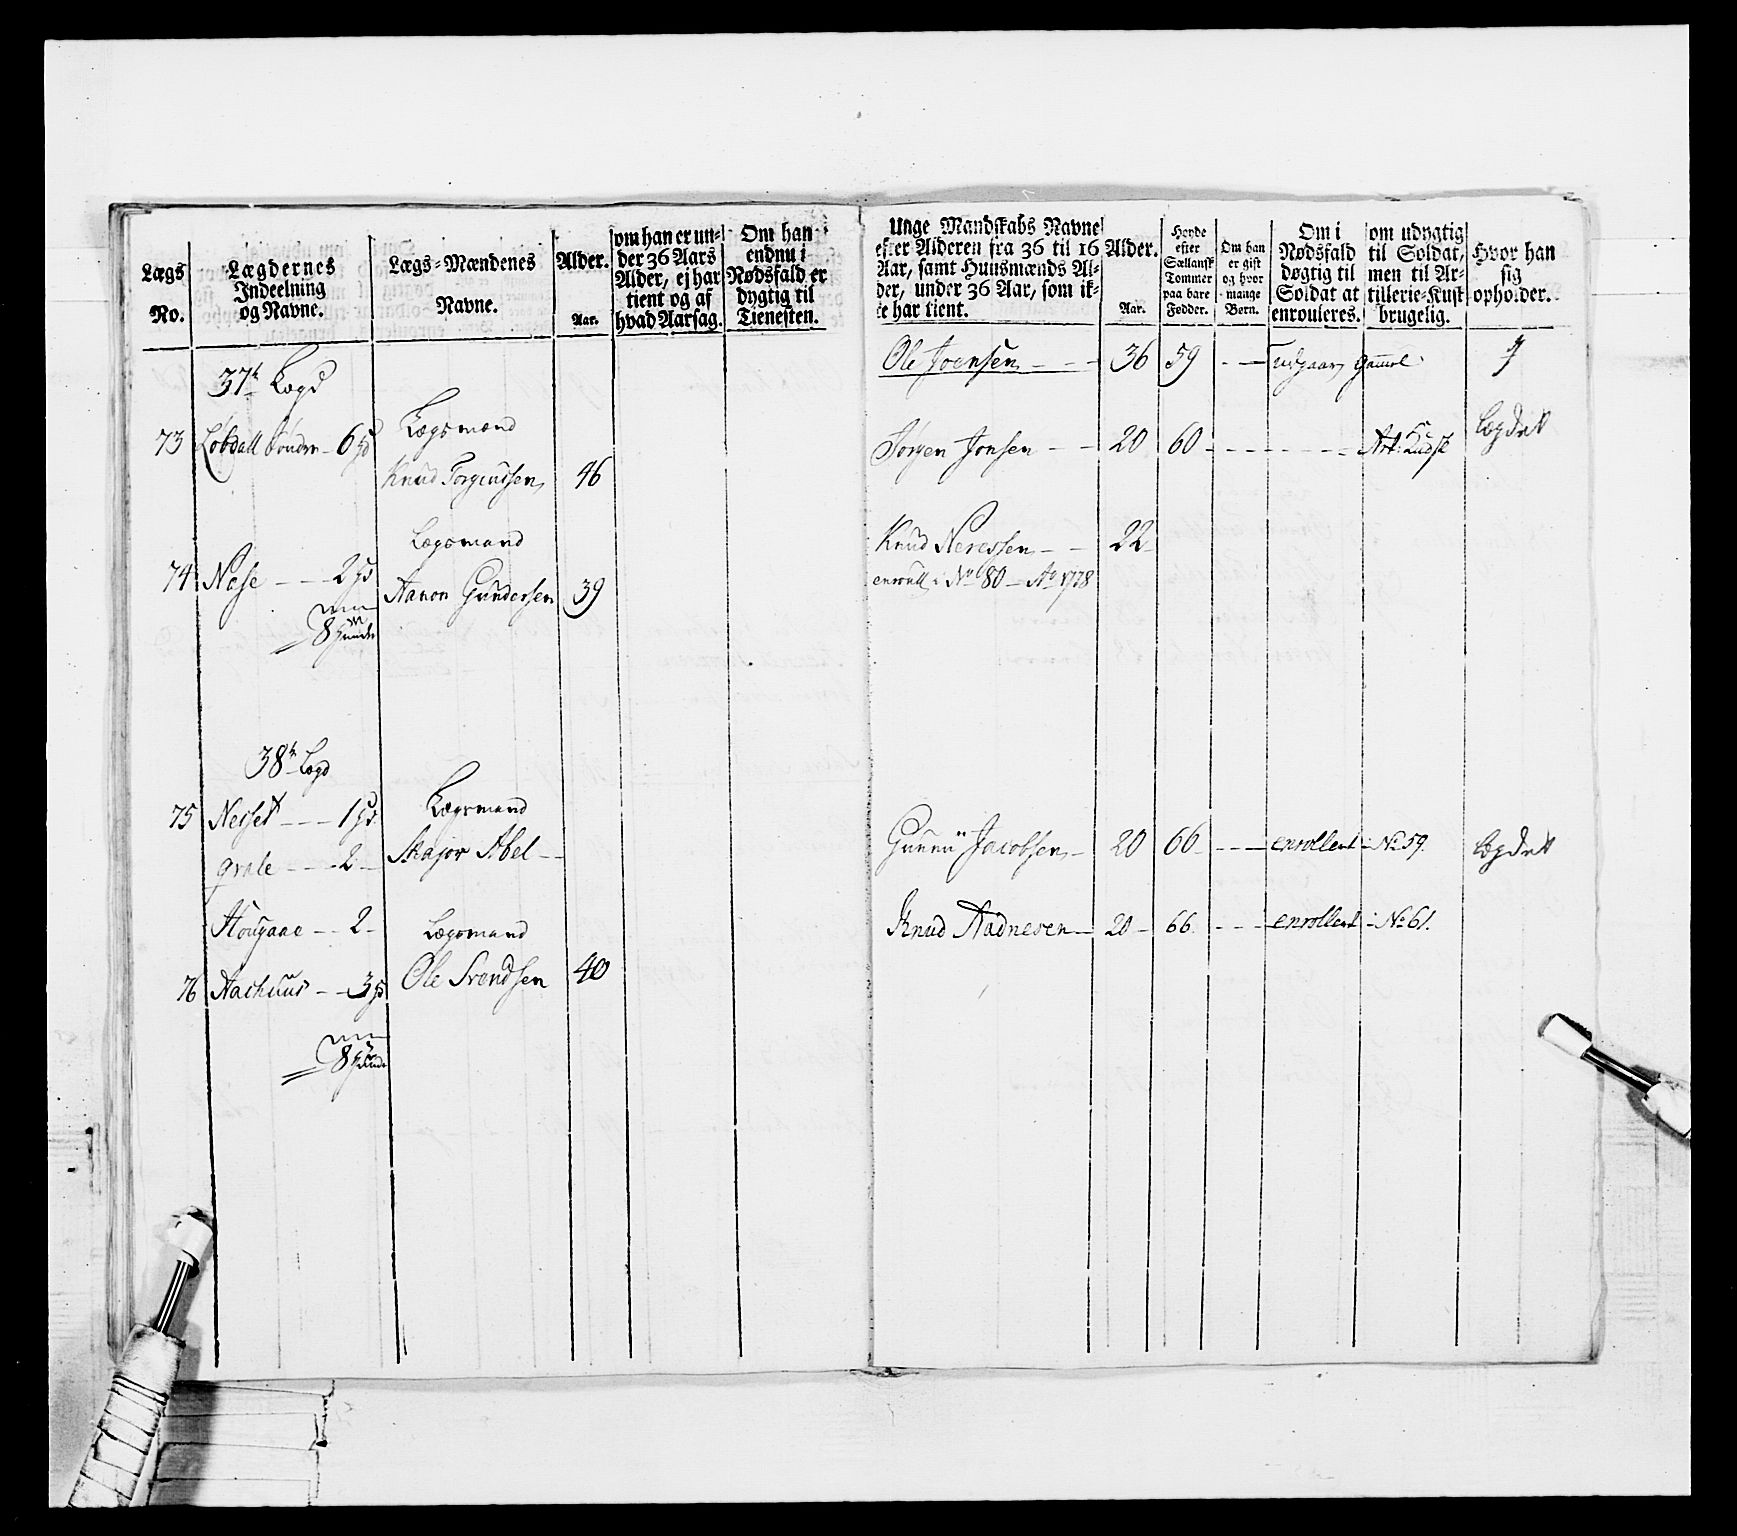 Lægs
No.
Lægdernes
Indeelning
og Navne.
Lægs-Mændenes
Navne.
Alder.
Aar.
om han er un-
der 36 Aars
Alder, ej har
tient og af
hvad Aarsag.
Om han
endnu i
Nødsfald er
dygtig til
Tienesten.
37te Lægd
73 6
Lægsmand
Knud Torgiudsen 46
Lægsmand
74 Nase - - - 2
Aanon Gundersen 39
8 Hunder
38te Lægd
75 Nesset - - - 1
Lægsmand
Major Abel - -
grale - - - 2 -
Hougaae - - 2 -
Lægsmand
76 Aashuus - - 3
Ole Svendsen 40
8 Hunder
Unge Mandskabs Navne
efter Alderen fra 36 til 16
Aar, samt Huusmænds Al-
der, under 36 Aar, som ik-
ke har tient.
Alder.
Aar.
Høyde
efter
Sællansk
Tommer
paa bare
Fødder.
Om han
er gift
og hvor
mange
Børn.
Om i
Nødsfald
døgtig til
Soldat at
enrouleres.
om udygtig
til Soldat,
men til Ar-
tillerie-Kusk
brugelig.
Hvor han
sig
opholder.
Ole Joensen - - - 36 59 - - udgaar gammel
Jørgen Jonsen - - 20 60 - - - - - - - Art: Kudsk Lægdet
Knud Neressen - - 22
enrull i No 80 - Ao 1778
Gunnu Jacobsen - 20 66 - - - enrollert - No 59. Lægdet
Knud Aadnesen - 20 - 66. - - - enrollert - No 61.